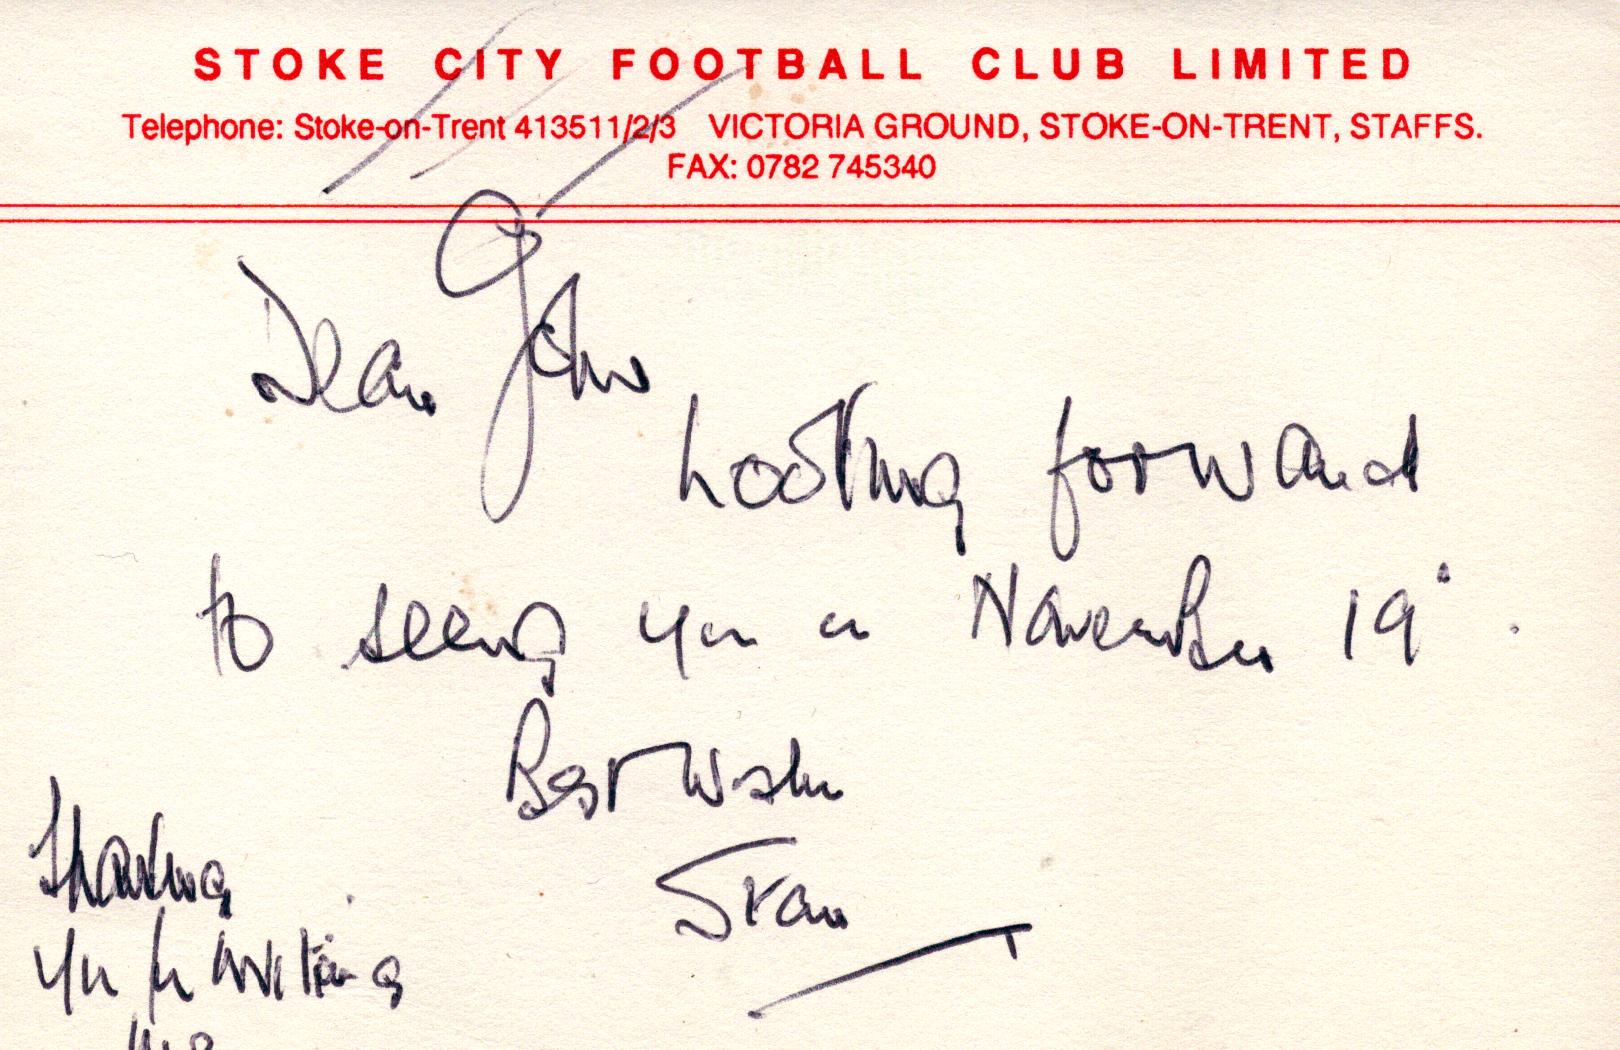 STOKE CITY FOOTBALL CLUB LIMITED
Telephone: Stoke-on-Trent 413511/2/3 VICTORIA GROUND, STOKE-ON-TRENT, STAFFS.
FAX: 0782 745340
Dear John
Looking forward
to seeing you on November 19
Best wishes
Stan
Thanking
you for writing
me